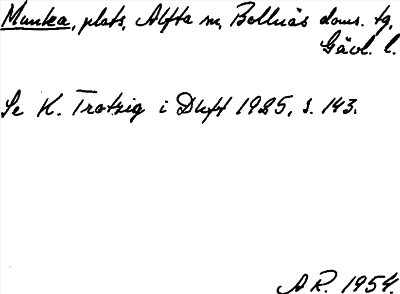 Munka, plats, Alfta sn, Bollnäs doms. tg,
Gävl. l.
Se K. Trotzig i DHft 1925, s. 143.
A R. 1954.